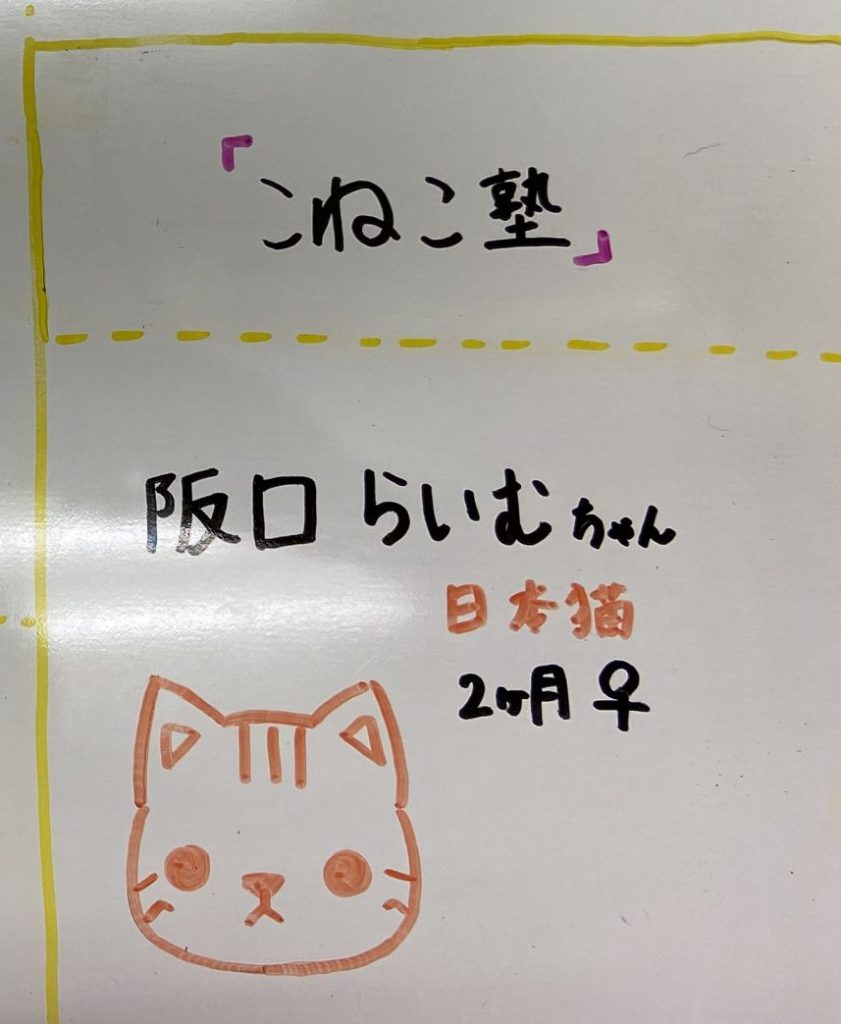 「こねこ塾」
阪口 らいむちゃん
日本猫
2ヶ月 ♀